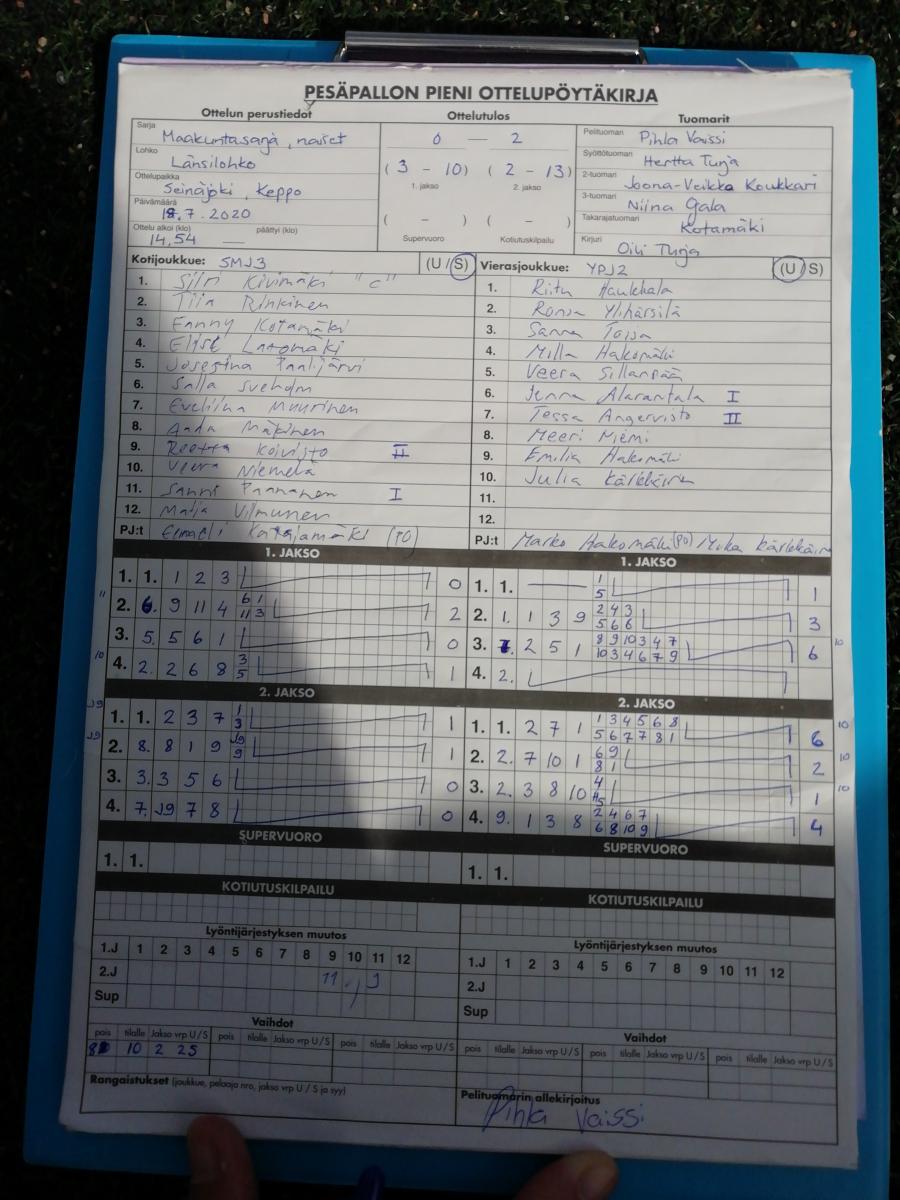 PESÄPALLON PIENI OTTELUPÖYTÄKIRJA
Ottelun perustiedot Ottelutulos Tuomarit
Sarja Maakuntasarja, naiset
Lohko Länsilohko
Ottelupaikka Seinäjoki, Keppo
Päivämäärä 18.7.2020
Ottelu alkoi (klo) päättyi (klo)
14,54 —
0 — 2
(3 - 10) (2 - 13)
1. jakso 2. jakso
( - ) ( - )
Supervuoro Kotiutuskilpailu
Pelituomari Pihla Vaissi
Syöttötuomari Hertta Turja
2-tuomari Joona-Veikko Koukkari
3-tuomari Niina Gala
Takarajatuomari Kotamäki
Kirjuri Oili Turja
Kotijoukkue: SMJ3 (U/S)
1. Siiri Kivimäki "C"
2. Tiia Rinkinen
3. Fanny Kotamäki
4. Elisa Latomäki
5. Josefina Paalijärvi
6. Salla Sveholm
7. Eveliina Muurinen
8. Anda Mäkinen
9. Reetta Koivisto II
10. Veera Niemelä
11. Sanni Paananen I
12. Maija Vilmunen
PJ:t Katajamäki (PO)
Vierasjoukkue: YPJ2 (U/S)
1. Riitu Haukkala
2. Ronja Ylihärsilä
3. Sanna Toija
4. Milla Hakomäki
5. Veera Sillanpää
6. Jenna Alarantala I
7. Tessa Angervisto II
8. Meeri Niemi
9. Emilia Hakomäki
10. Julia Kärkkäinen
11.
12.
PJ:t Marko Hakomäki (PO) Mika Kärkkäinen
1. JAKSO
1. 1. 1 2 3 0
" 2. 6. 9 11 4 6 1 2
11 3
3. 5. 5 6 1 0
10 4. 2. 2 6 8 3 1
5
1. JAKSO
1. 1. — 1 1
5
2. 1. 1 3 9 2 4 3 3
5 6 6
3. 7. 2 5 1 8 9 10 3 4 7 6 10
10 3 4 6 7 9
4. 2.
2. JAKSO
J9 1. 1. 2 3 7 1 1
3
J9 2. 8. 8 1 9 J9 1
9
3. 3. 3 5 6 0
4. 7. J9 7 8 0
2. JAKSO
1. 1. 2 7 1 1 3 4 5 6 8 6 10
5 6 7 7 8 1
2. 2. 7 10 1 6 9 2 10
8 1
3. 2. 3 8 10 4 1 10
5
4. 9. 1 3 8 2 4 6 7 4
6 8 10 9
SUPERVUORO
1. 1.
SUPERVUORO
1. 1.
KOTIUTUSKILPAILU
KOTIUTUSKILPAILU
Lyöntijärjestyksen muutos
1.J 1 2 3 4 5 6 7 8 9 10 11 12
2.J 11 J 9
Sup
Lyöntijärjestyksen muutos
1.J 1 2 3 4 5 6 7 8 9 10 11 12
2.J
Sup
Vaihdot
pois tilalle Jakso vrp U/S pois tilalle Jakso vrp U/S pois tilalle Jakso vrp U/S
8 10 2 2S
Vaihdot
pois tilalle Jakso vrp U/S pois tilalle Jakso vrp U/S pois tilalle Jakso vrp U/S
Rangaistukset (joukkue, pelaaja nro, jakso vrp U / S ja syy)
Pelituomarin allekirjoitus
Pihla Vaissi